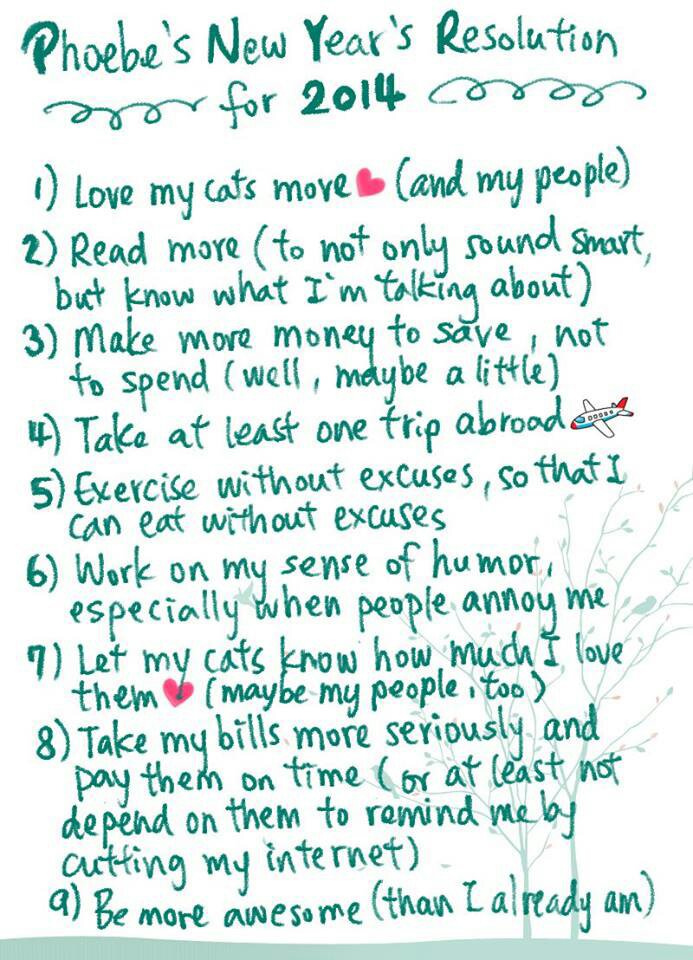 Phoebe's New Year's Resolution
for 2014
1) Love my cats more (and my people)
2) Read more (to not only sound smart,
but know what I'm talking about)
3) Make more money to save, not
to spend (well, maybe a little)
4) Take at least one trip abroad
5) Exercise without excuses, so that I
can eat without excuses
6) Work on my sense of humor,
especially when people annoy me
7) Let my cats know how much I love
them (maybe my people, too)
8) Take my bills more seriously and
pay them on time (or at least not
depend on them to remind me by
cutting my internet)
9) Be more awesome (than I already am)